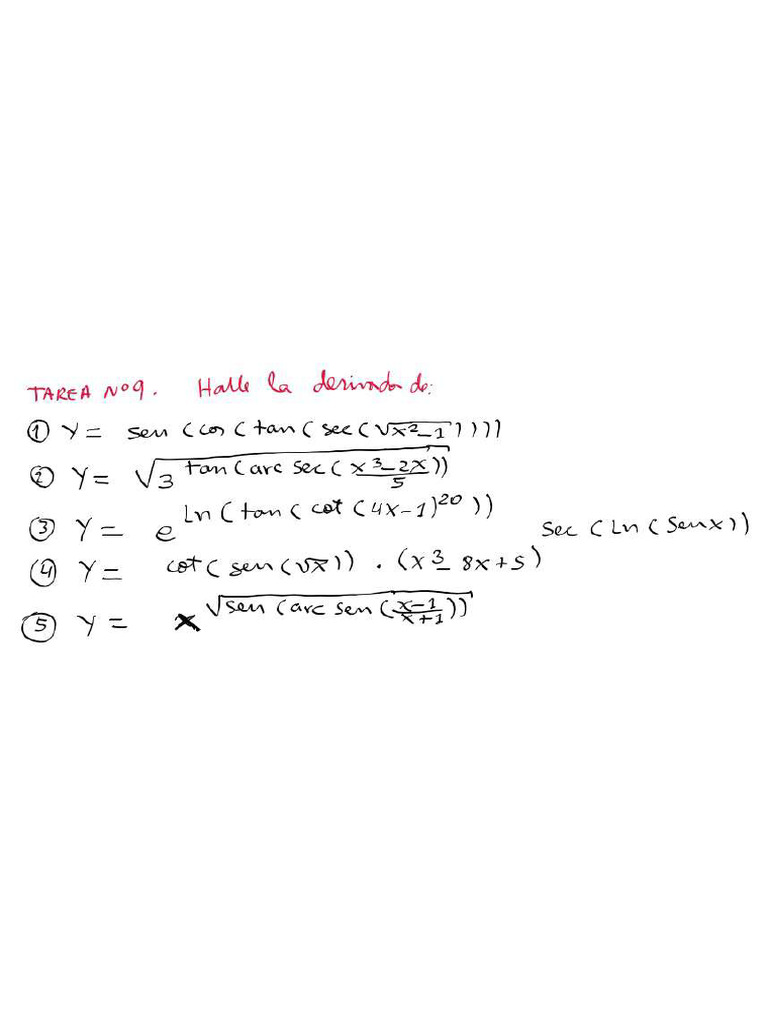 TAREA Nº9. Halle la derivada de:
① Y = sen(cos(tan(sec(√x²-1))))
② Y = √3^tan(arc sec(x³-2x/5))
③ Y = e^Ln(tan(cot(4x-1)^20))
④ Y = cot(sen(√x)) . (x³-8x+5)^sec(Ln(senx))
⑤ Y = x^√sen(arc sen(x-1/x+1))